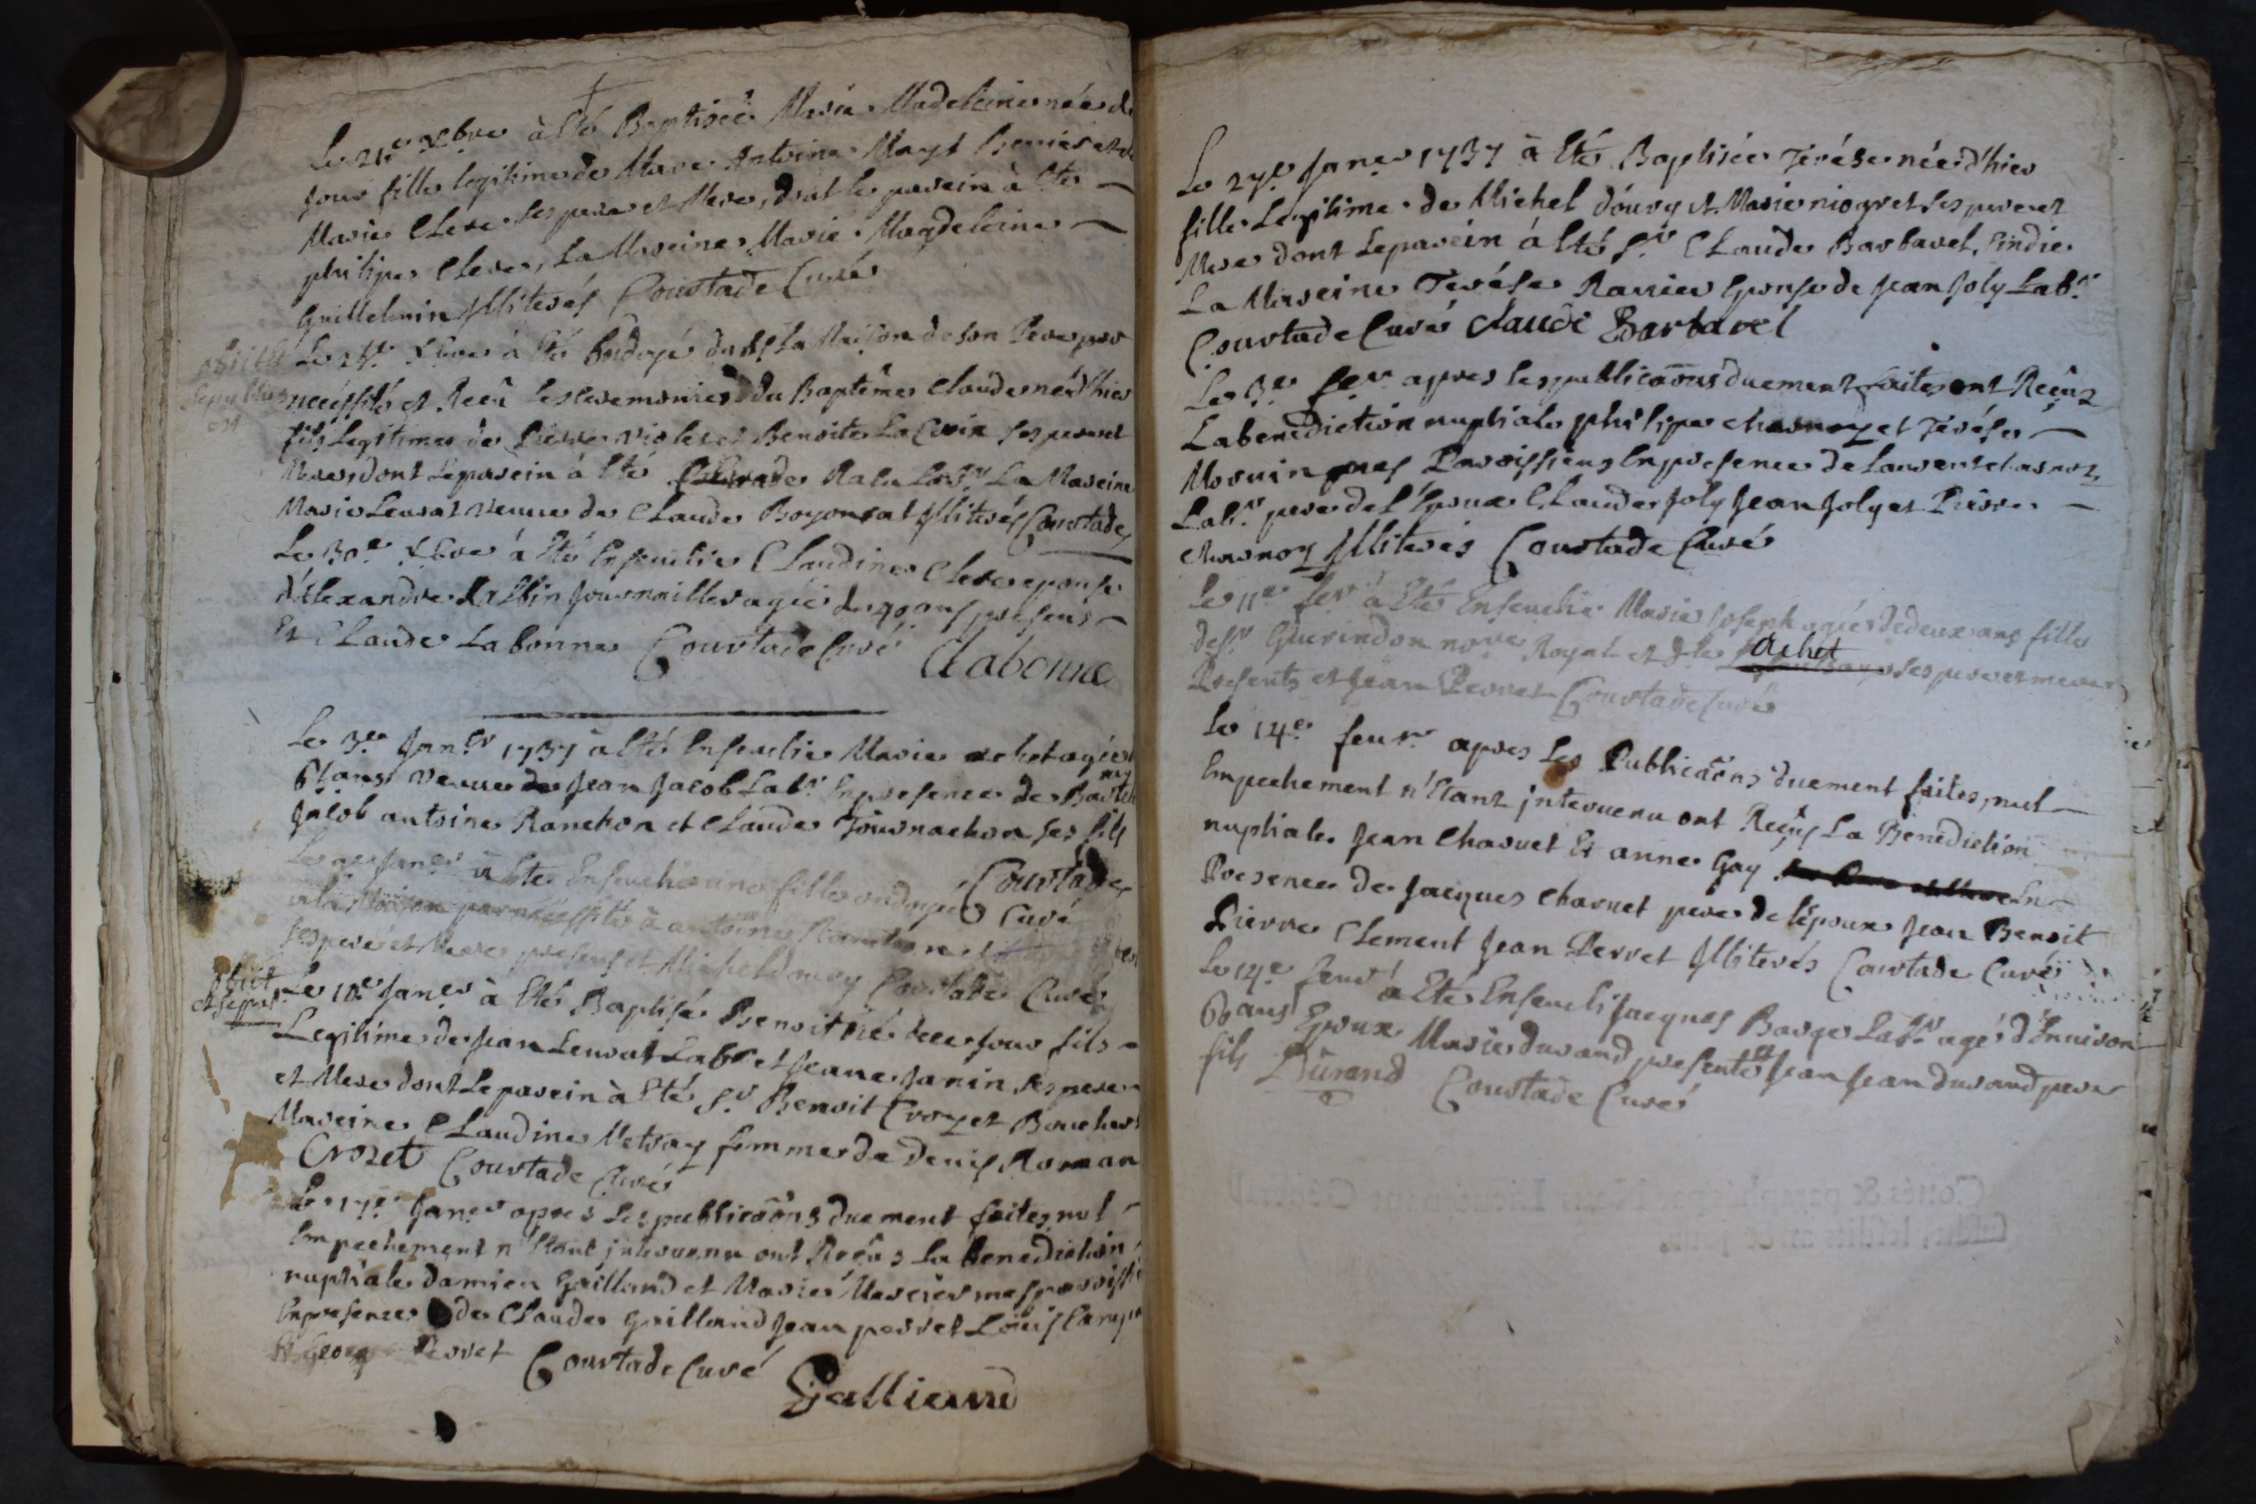 Le 21e Xbre à Eté Baptisée Marie Madeleine née de
jour fille legitime de Marc Antoine Mayt
Marie Clere ses pere et Mere, dont le parein à Eté
philipe Clere, La Mareine Marie Magdeleine
Guillelmin Illiterés Courtade Curé
obiit et
sepultus
est
Le Xbre à Eté Ondoyé dans La Maison de son Pere par
necéssité et Receû les ceremonies du Baptême Claude né d'hier
fils Legitime de Pierre Violet et Benoite La Croix ses pere et
Mere, dont Leparein à Eté La Mareine
Marie Leurat Veuve de Claude Boyonnat Illiterés Courtade
Le 30e Xbre à Eté Ensevelie Claudine Clere epouse
d'Alexandre journaillier agée de ans presens
Et Claude Labonne Courtade Curé
Clabonne
Le 3e Janer 1737 à Eté Ensevelie Marie achet agée
ans Veuve de Jean Jacob Labr En presence de Bartelemy
Jacob antoine Ranchon et Claude Tournachon ses fils
Courtade
Curé
Le Janer à Eté Ensevelie une fille ondoyée
a la Maison par necéssité à antoine
ses pere et Mere presens et Michel doury Courtade Curé
Obiit
et sepult
Le 10e Janer à Eté Baptisé Benoit né Ce jour fils
Legitime de Jean Leurat Labr et Jeanne Janin ses pere
et Mere dont Leparein à Eté Sr Benoit Crozet Boucher
Mareine Claudine Metray femme de Denis Roman
Crozet Courtade Curé
Le 17e Janer apres Les publicaõns duement faites, nul
Empechement n'Etant intervenu ont Reçûs La benediction
nuptiale damien Gailland et Marie Mercier mes paroissi
En presence de Claude Gailland Jean perret Loüis
Et George Perret Courtade Curé
Galliand
Le 27e Janer 1737 à Eté Baptisée Terése née d'hier
fille Legitime de Michel doury et Marie niogret ses pere et
Mere dont Leparein à Eté Sr Claude Barbavel, Sindic
La Mareine Terése Ravier Epouse de Jean Joly Labr
Courtade Curé Claude Barbavel
Le 3e fevr apres les publicaõns duement faites ont Reçûz
La benediction nuptiale philipe charnoz et Terése
Morvin mes Paroissiens En presence de Laurent charnoz
Labr pere de L'Epoux Claude Joly Jean Joly et Pierre
charnoz Illiterés Courtade Curé
Le 11e fevr à Eté Ensevelie Marie Joseph agée de deux ans fille
de Sr Guerindon nore Royal et dlle achet ses pere et mere
Presents et Jean Perret Courtade Curé
Le 14e fevr apres Les Publicaõns duement faites, nul
Empechement n'Etant intervenu ont Reçûs La Benediction
nuptiale Jean Charvet Et anne Gay En
Presence de Jacques Charvet pere de l'époux Jean Benoit
Pierre Clement Jean Perret Illiterés Courtade Curé
Le 14e fevr à Eté Enseveli Jacques Barge Labr agé d'Environ
60 ans Epoux Marie durand presents Jean Jean durand pere
fils Dûrand Courtade Curé